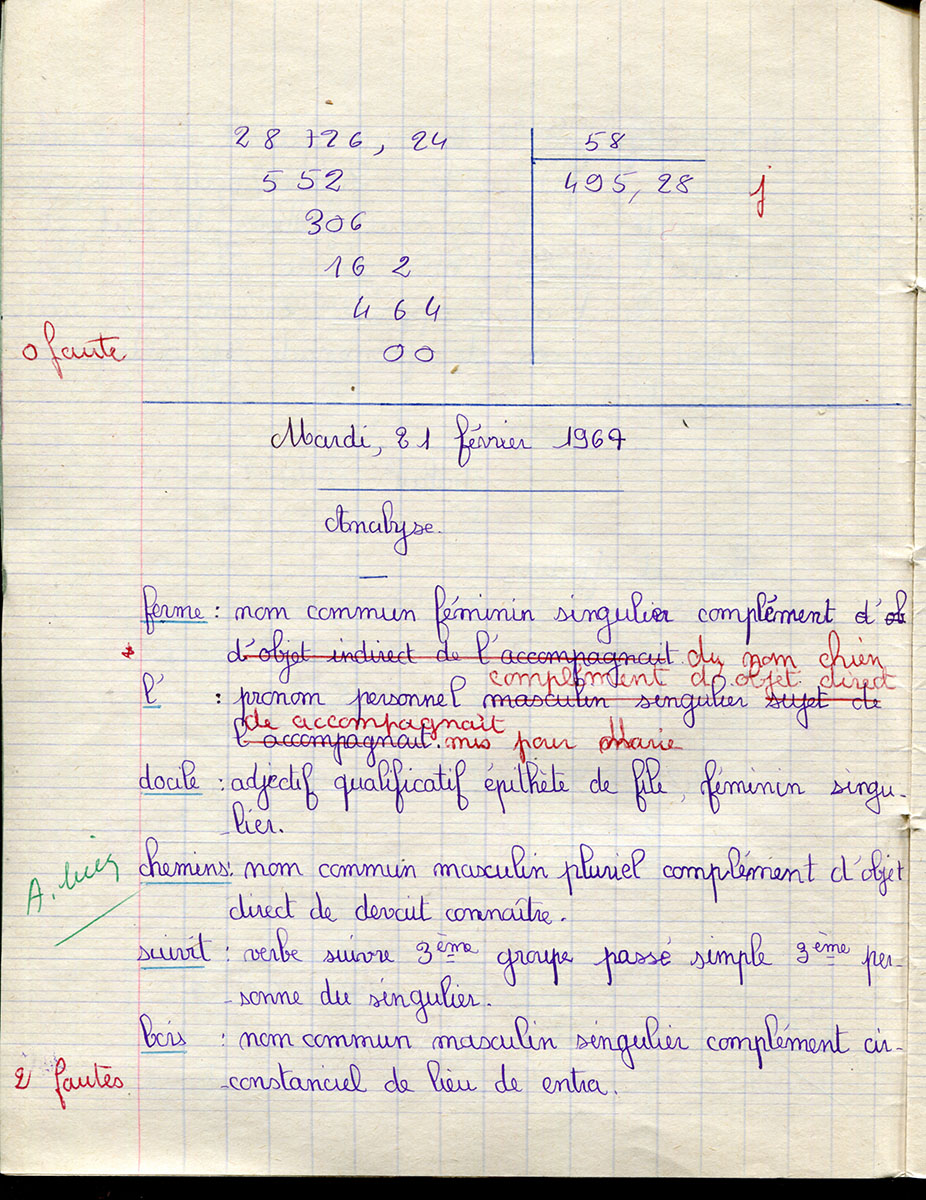 28 726, 24 58
552 495, 28 j
306
16 2
4 6 4
0 faute 00
Mardi, 21 février 1967
Analyse.
ferme : nom commun féminin singulier complément d'ob
d'objet indirect de l'accompagnait du nom chien
complément d'objet direct
l' : pronom personnel masculin singulier sujet de
de accompagnait
l'accompagnait. mis pour Marie
docile : adjectif qualificatif épithète de file, féminin singu-
-lier.
chemins : nom commun masculin pluriel complément d'objet
direct de devait connaître.
suivit : verbe suivre 3ème groupe passé simple 3ème per-
-sonne du singulier.
bois : nom commun masculin singulier complément cir-
2 fautes -constanciel de lieu de entra.